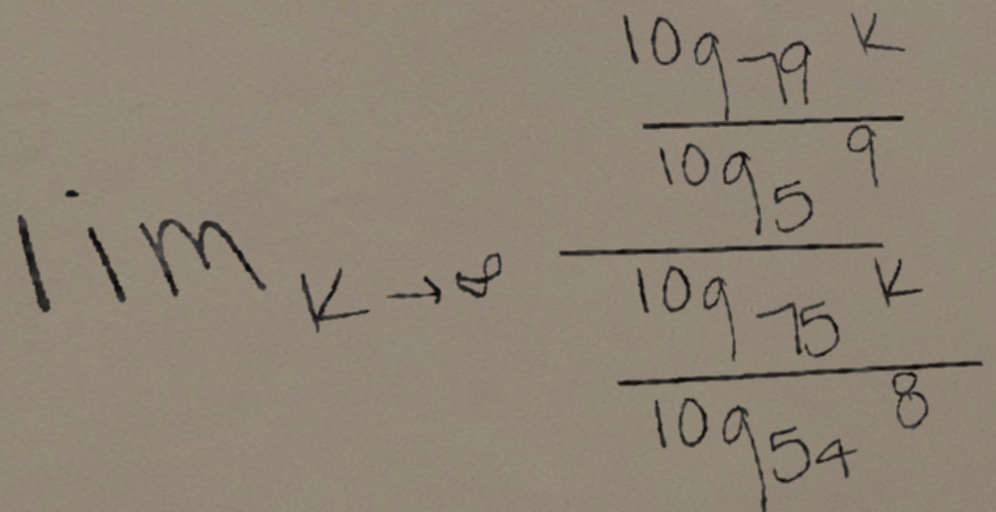 lim K→∞
log 79 K
log 5 9
log 75 K
log 54 8